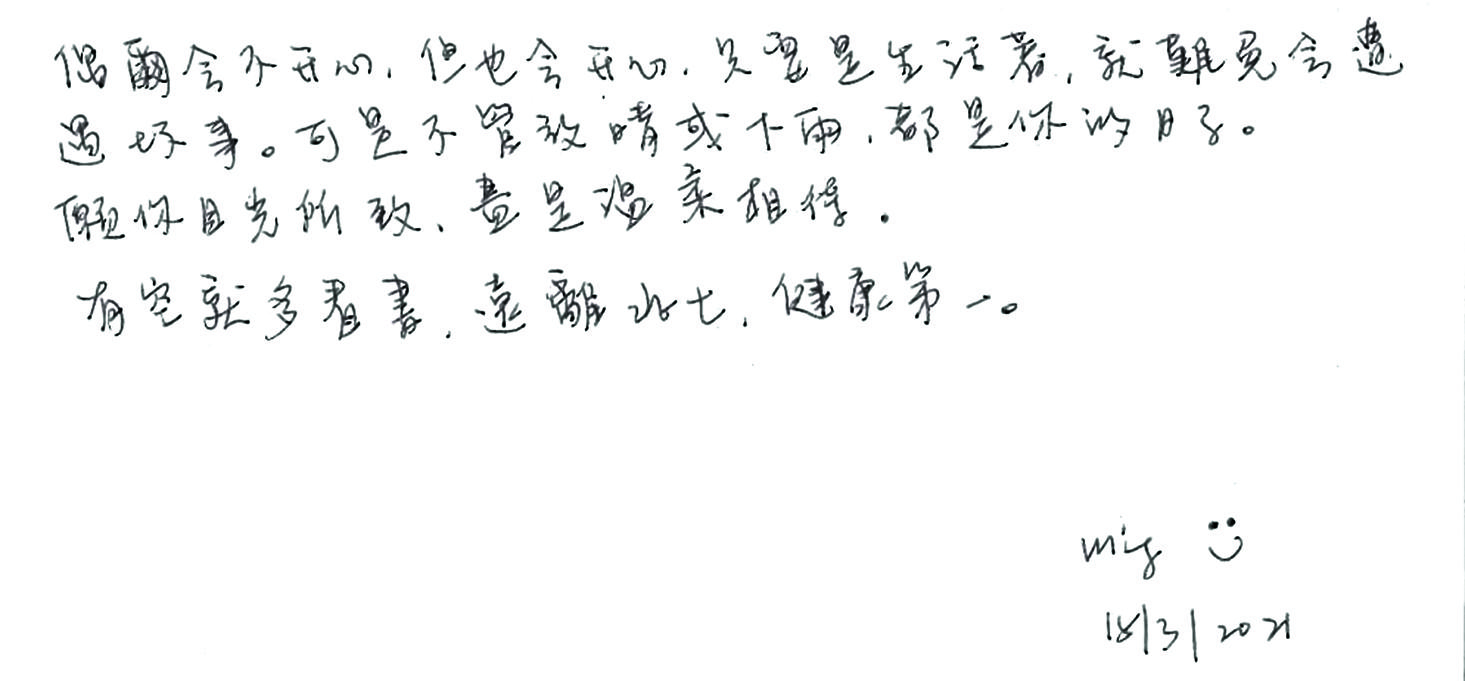 偶爾会不开心，但也会开心，只要是生活著，就難免会遭
遇坏事。可是不管放晴或下雨，都是你的日子。
願你目光所致，盡是溫柔相待。
有空就多看書，遠離水七，健康第一。
18/3/2021